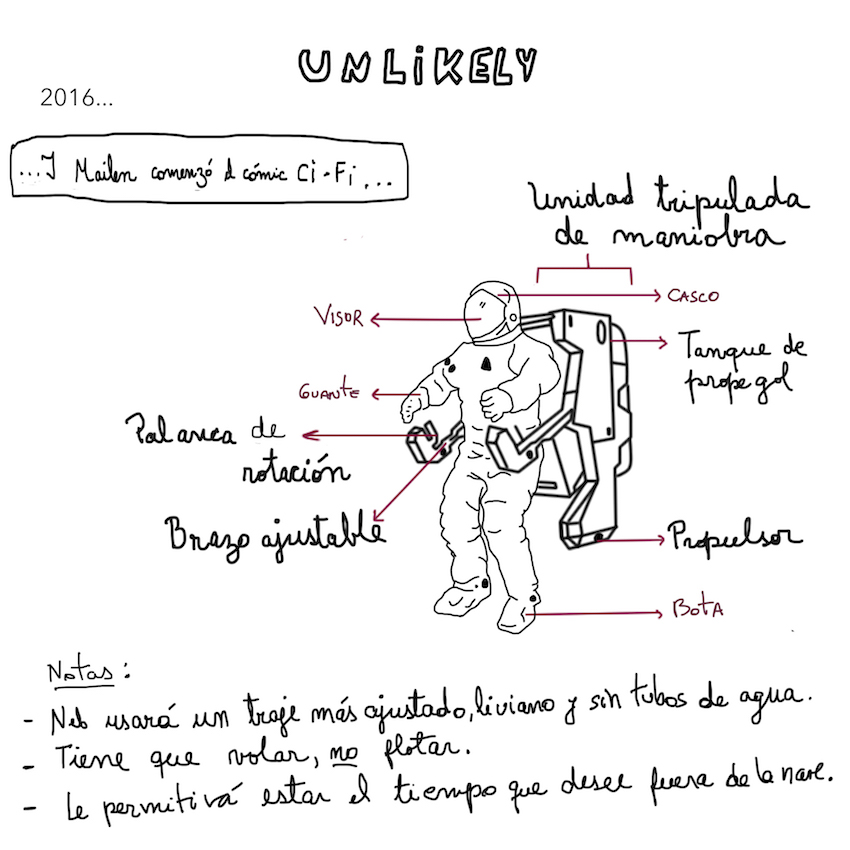 UNLiKELY
2016...
...Y Mailen comenzó el cómic Ci-Fi,...
Unidad tripulada
de maniobra
CASCO
VISOR
Tanque de
propegol
GUANTE
Palanca de
rotación
Brazo ajustable
Propulsor
BOTA
Notas:
- Neb usará un traje más ajustado, liviano y sin tubos de agua.
- Tiene que volar, no flotar.
- Le permitirá estar el tiempo que desee fuera de la nave.